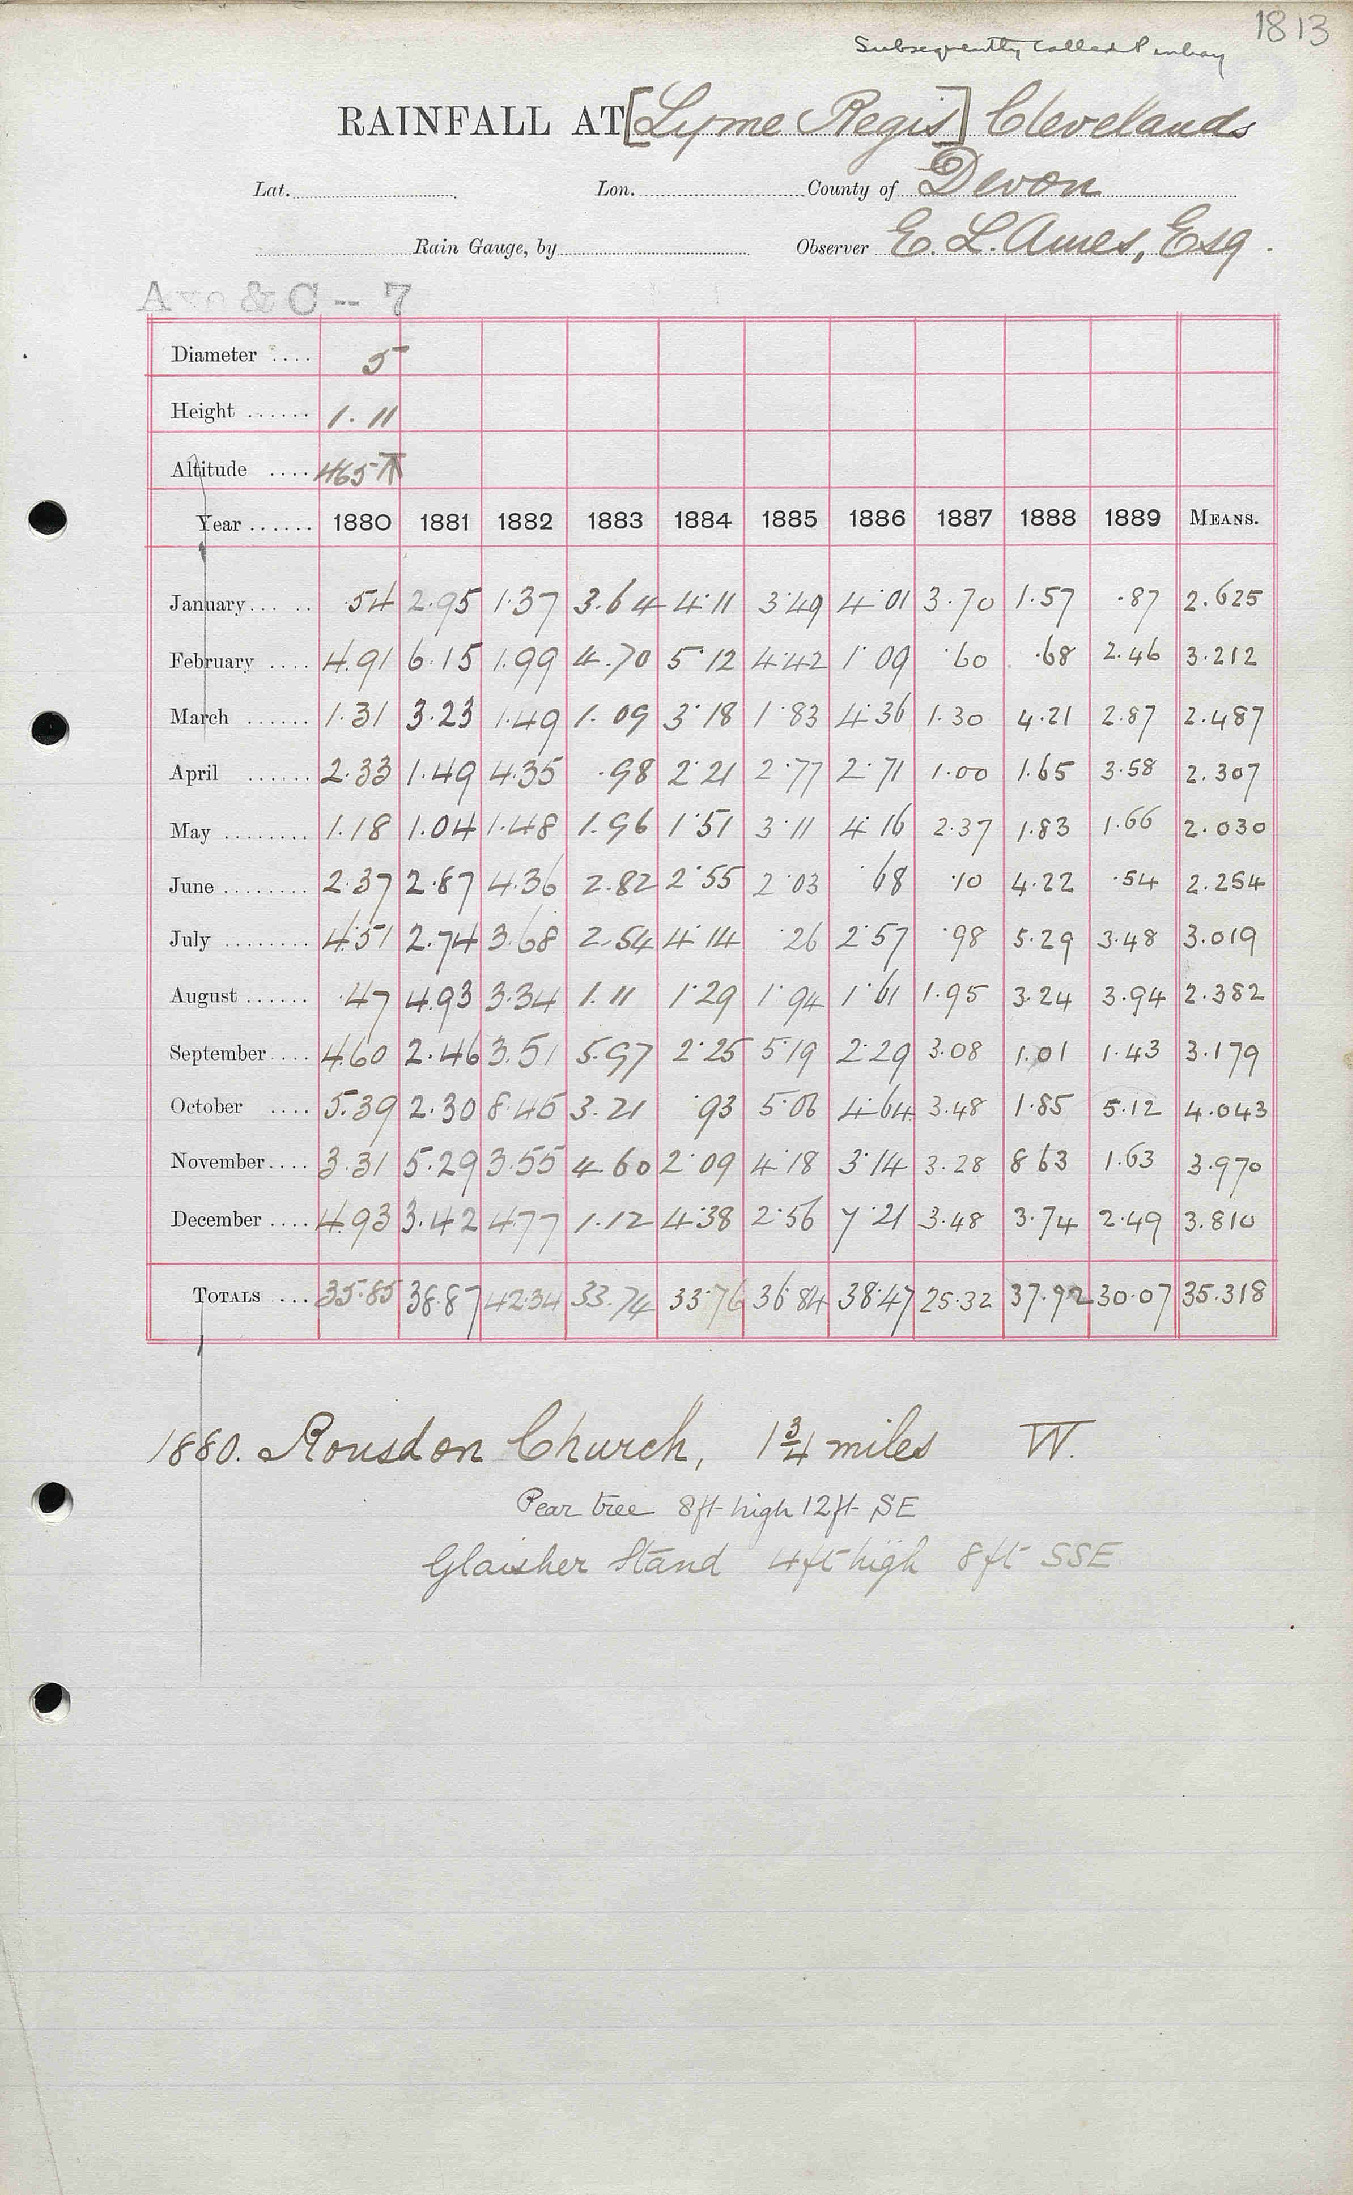 1813
Subsequently called Pinhay
RAINFALL AT [Lyme Regis] Clevelands
Lat. Lon. County of Devon
Rain Gauge, by Observer E. L. Ames, Esq.
& C - 7
Diameter .... 5
Height ...... 1.11
Altitude .... 465 T
Year ...... 1880 1881 1882 1883 1884 1885 1886 1887 1888 1889 MEANS.
January ... .. .54 2.95 1.37 3.64 4.11 3.49 4.01 3.70 1.57 .87 2.625
February .... 4.91 6.15 1.99 4.70 5.12 4.42 1.09 .60 .68 2.46 3.212
March ...... 1.31 3.23 1.49 1.09 3.18 1.83 4.36 1.30 4.21 2.87 2.487
April ...... 2.33 1.49 4.35 .98 2.21 2.77 2.71 1.00 1.65 3.58 2.307
May ........ 1.18 1.04 1.48 1.96 1.51 3.11 4.16 2.37 1.83 1.66 2.030
June ........ 2.37 2.87 4.36 2.82 2.55 2.03 .68 .10 4.22 .54 2.254
July ........ 4.51 2.74 3.68 2.54 4.14 .26 2.57 .98 5.29 3.48 3.019
August ...... .47 4.93 3.34 1.11 1.29 1.94 1.61 1.95 3.24 3.94 2.382
September .... 4.60 2.46 3.51 5.97 2.25 5.19 2.29 3.08 1.01 1.43 3.179
October .... 5.39 2.30 8.45 3.21 .93 5.06 4.64 3.48 1.85 5.12 4.043
November .... 3.31 5.29 3.55 4.60 2.09 4.18 3.14 3.28 8.63 1.63 3.970
December .... 4.93 3.42 4.77 1.12 4.38 2.56 7.21 3.48 3.74 2.49 3.810
TOTALS ... 35.85 38.87 42.34 33.74 33.76 36.84 38.47 25.32 37.92 30.07 35.318
1880. Rousdon Church, 1 3/4 miles W.
Pear tree 8ft high 12ft SE
Glaisher Stand 4ft high 8ft SSE